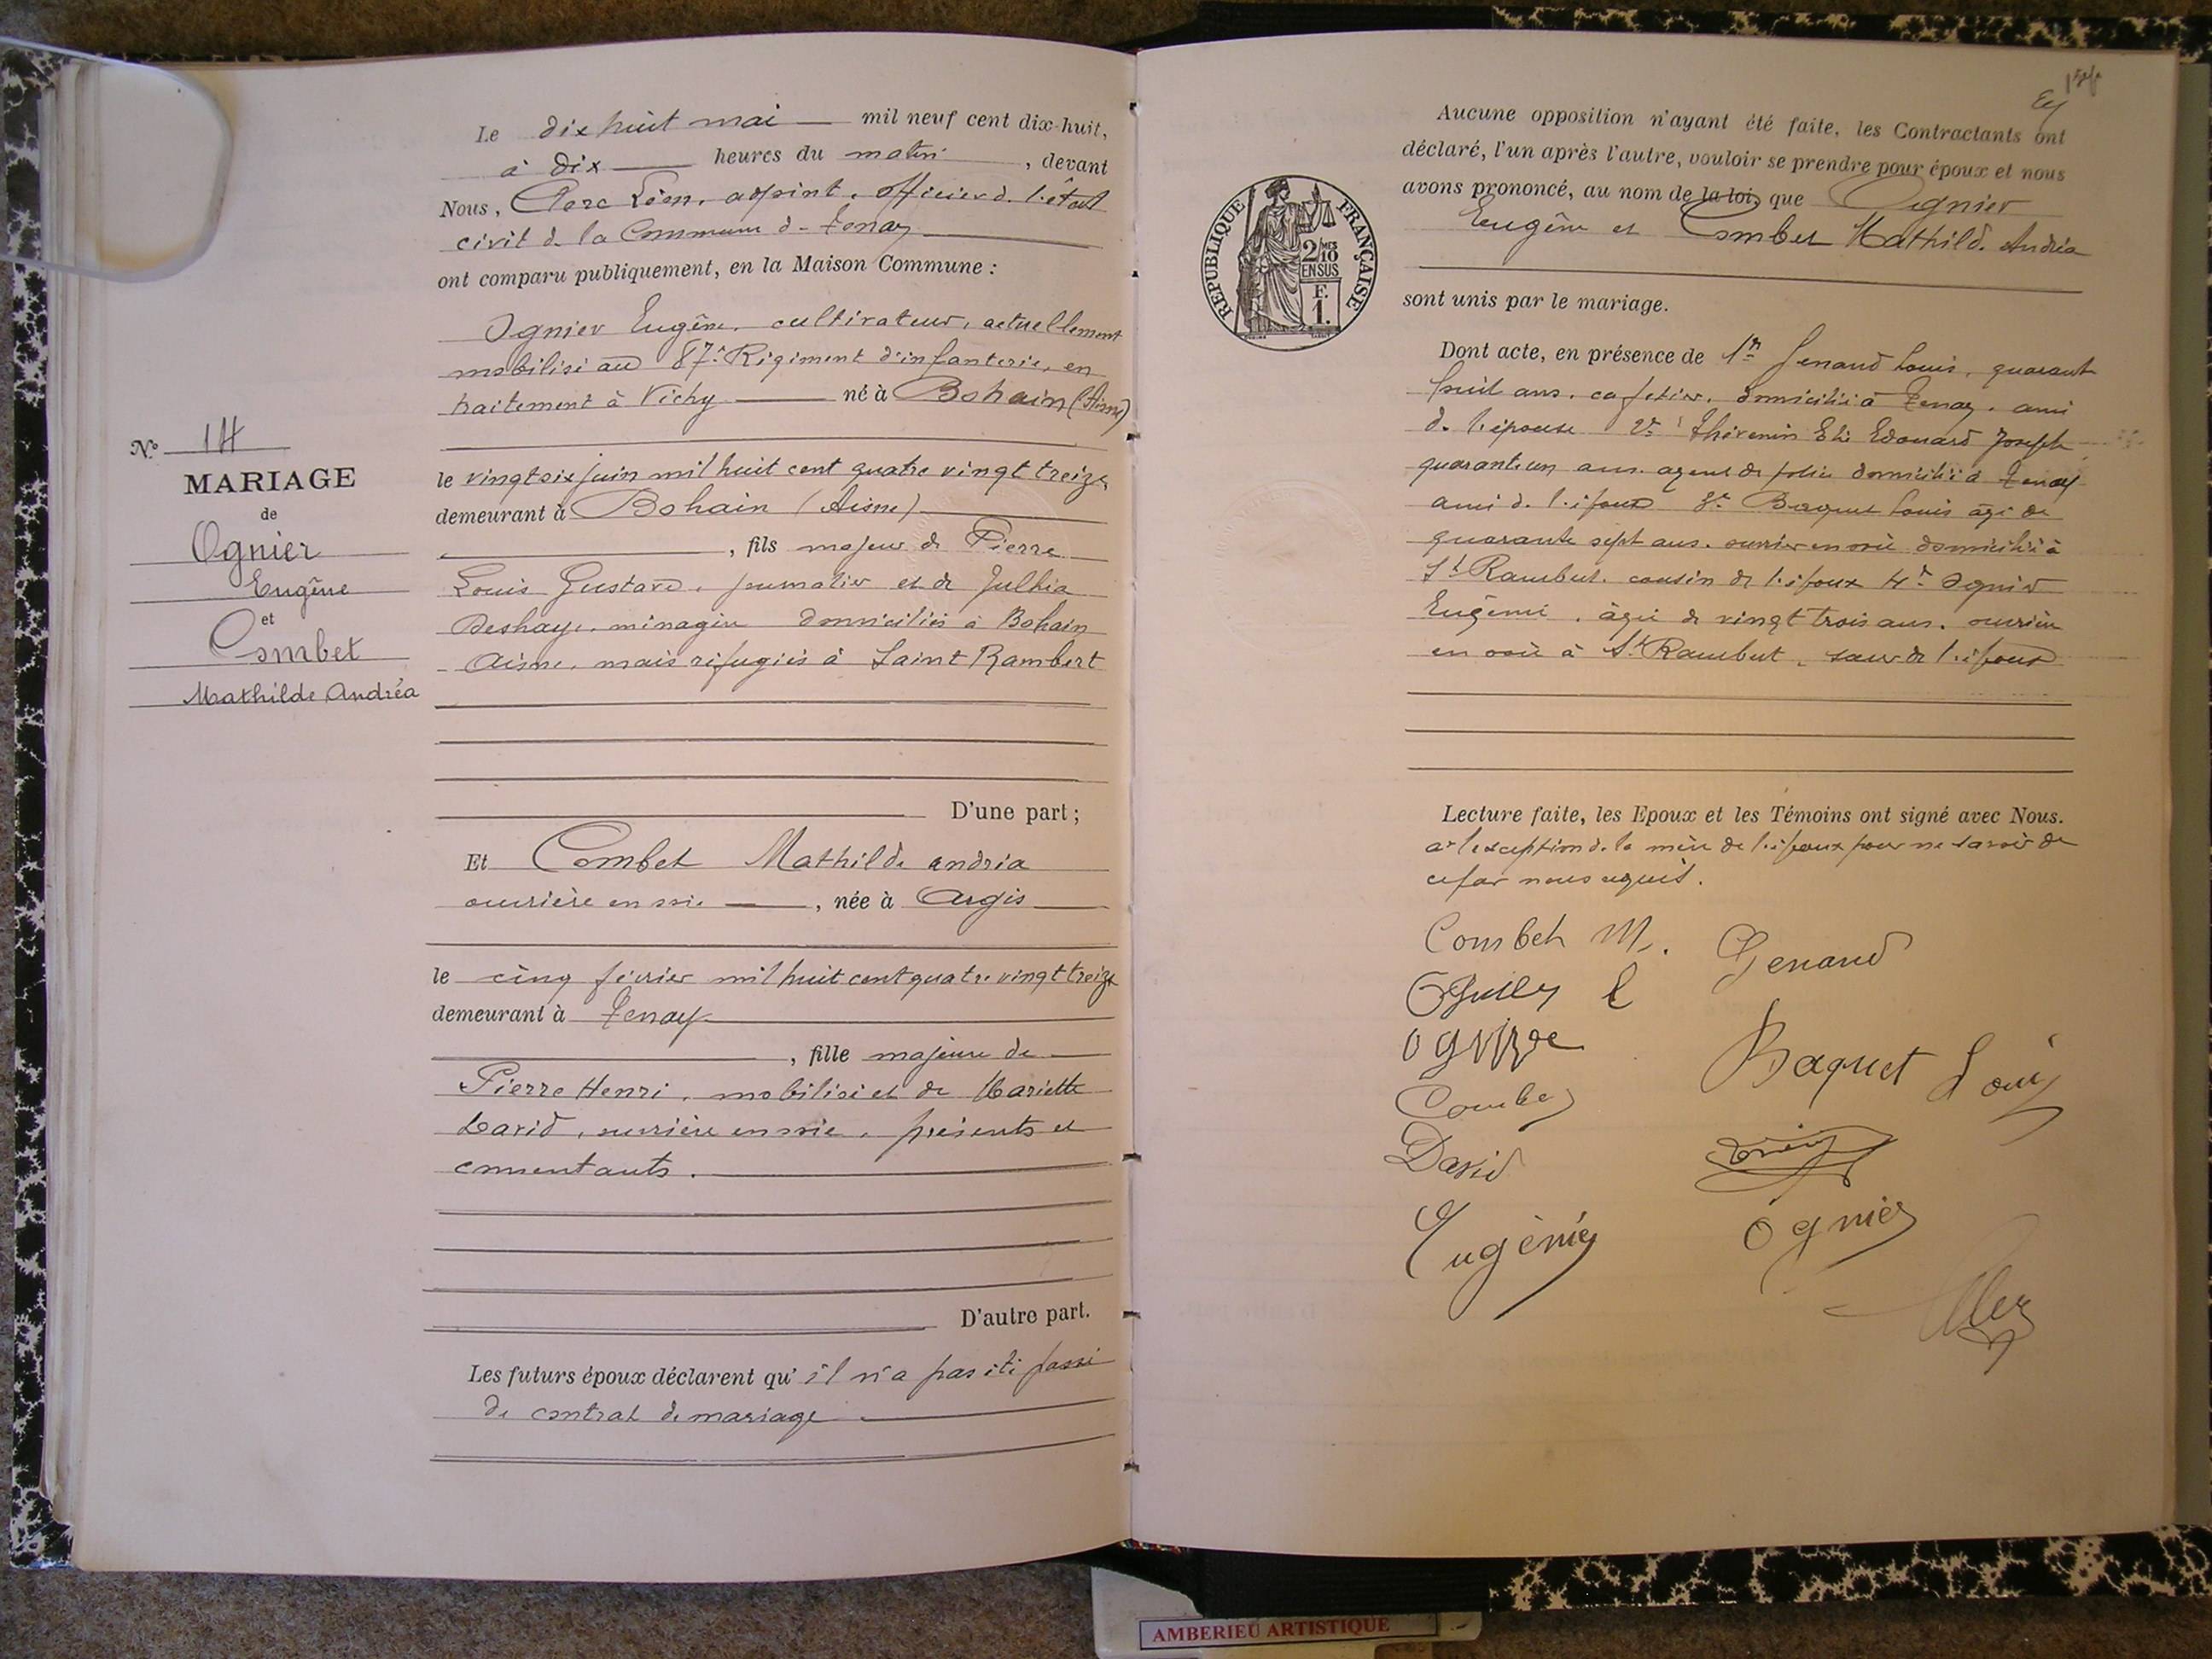 Le dix huit mai mil neuf cent dix-huit,
à dix heures du matin, devant
Nous, Clerc Léon, adjoint, officier d. l'état
civil d. la Commune d. Tenay
ont comparu publiquement, en la Maison Commune :
Ognier Eugène, cultivateur, actuellement
mobilisé au 87e Régiment d'infanterie, en
traitement à Vichy né à Bohain (Aisne)
le vingt six juin mil huit cent quatre vingt treize
demeurant à Bohain (Aisne)
, fils majeur de Pierre
Louis Gustave, journalier et de Julhia
Deshaye, ménagère domiciliés à Bohain
Aisne, mais réfugiés à Saint Rambert
D'une part ;
Et Combet Mathilde andréa
ouvrière en soie, née à Argis
le cinq février mil huit cent quatre vingt treize
demeurant à Tenay
, fille majeure de
Pierre Henri, mobilisé et de Mariette
David, ouvrière en soie, présents et
consentants.
D'autre part.
Les futurs époux déclarent qu'il n'a pas été passé
de contrat de mariage
No 14
MARIAGE
de
Ognier
Eugène
et
Combet
Mathilde Andréa
Aucune opposition n'ayant été faite, les Contractants ont
déclaré, l'un après l'autre, vouloir se prendre pour époux et nous
avons prononcé, au nom de la loi, que Ognier
Eugène et Combet Mathilde Andréa
sont unis par le mariage.
RÉPUBLIQUE FRANÇAISE
2/10 MES
EN SUS
F.
1.
Dont acte, en présence de 1er Genand Louis, quarante
huit ans, cafetier, domicilié à Tenay, ami
d. l'épouse 2e Thévenin Edouard Joseph
quarante un ans, agent de police domicilié à Tenay
ami d. l'époux 3e Baquet Louis âgé de
quarante sept ans, ouvrier en soie domicilié à
St Rambert, cousin de l'époux 4e Ognier
Eugénie, âgée de vingt trois ans, ouvrière
en soie à St Rambert, sœur de l'époux
Lecture faite, les Epoux et les Témoins ont signé avec Nous.
à l'exception de la mère de l'époux pour ne savoir de
ce par nous requis.
Combet M. Genand
Baquet Louis
Combet
David
Eugénie Ognier
AMBERIEU ARTISTIQUE